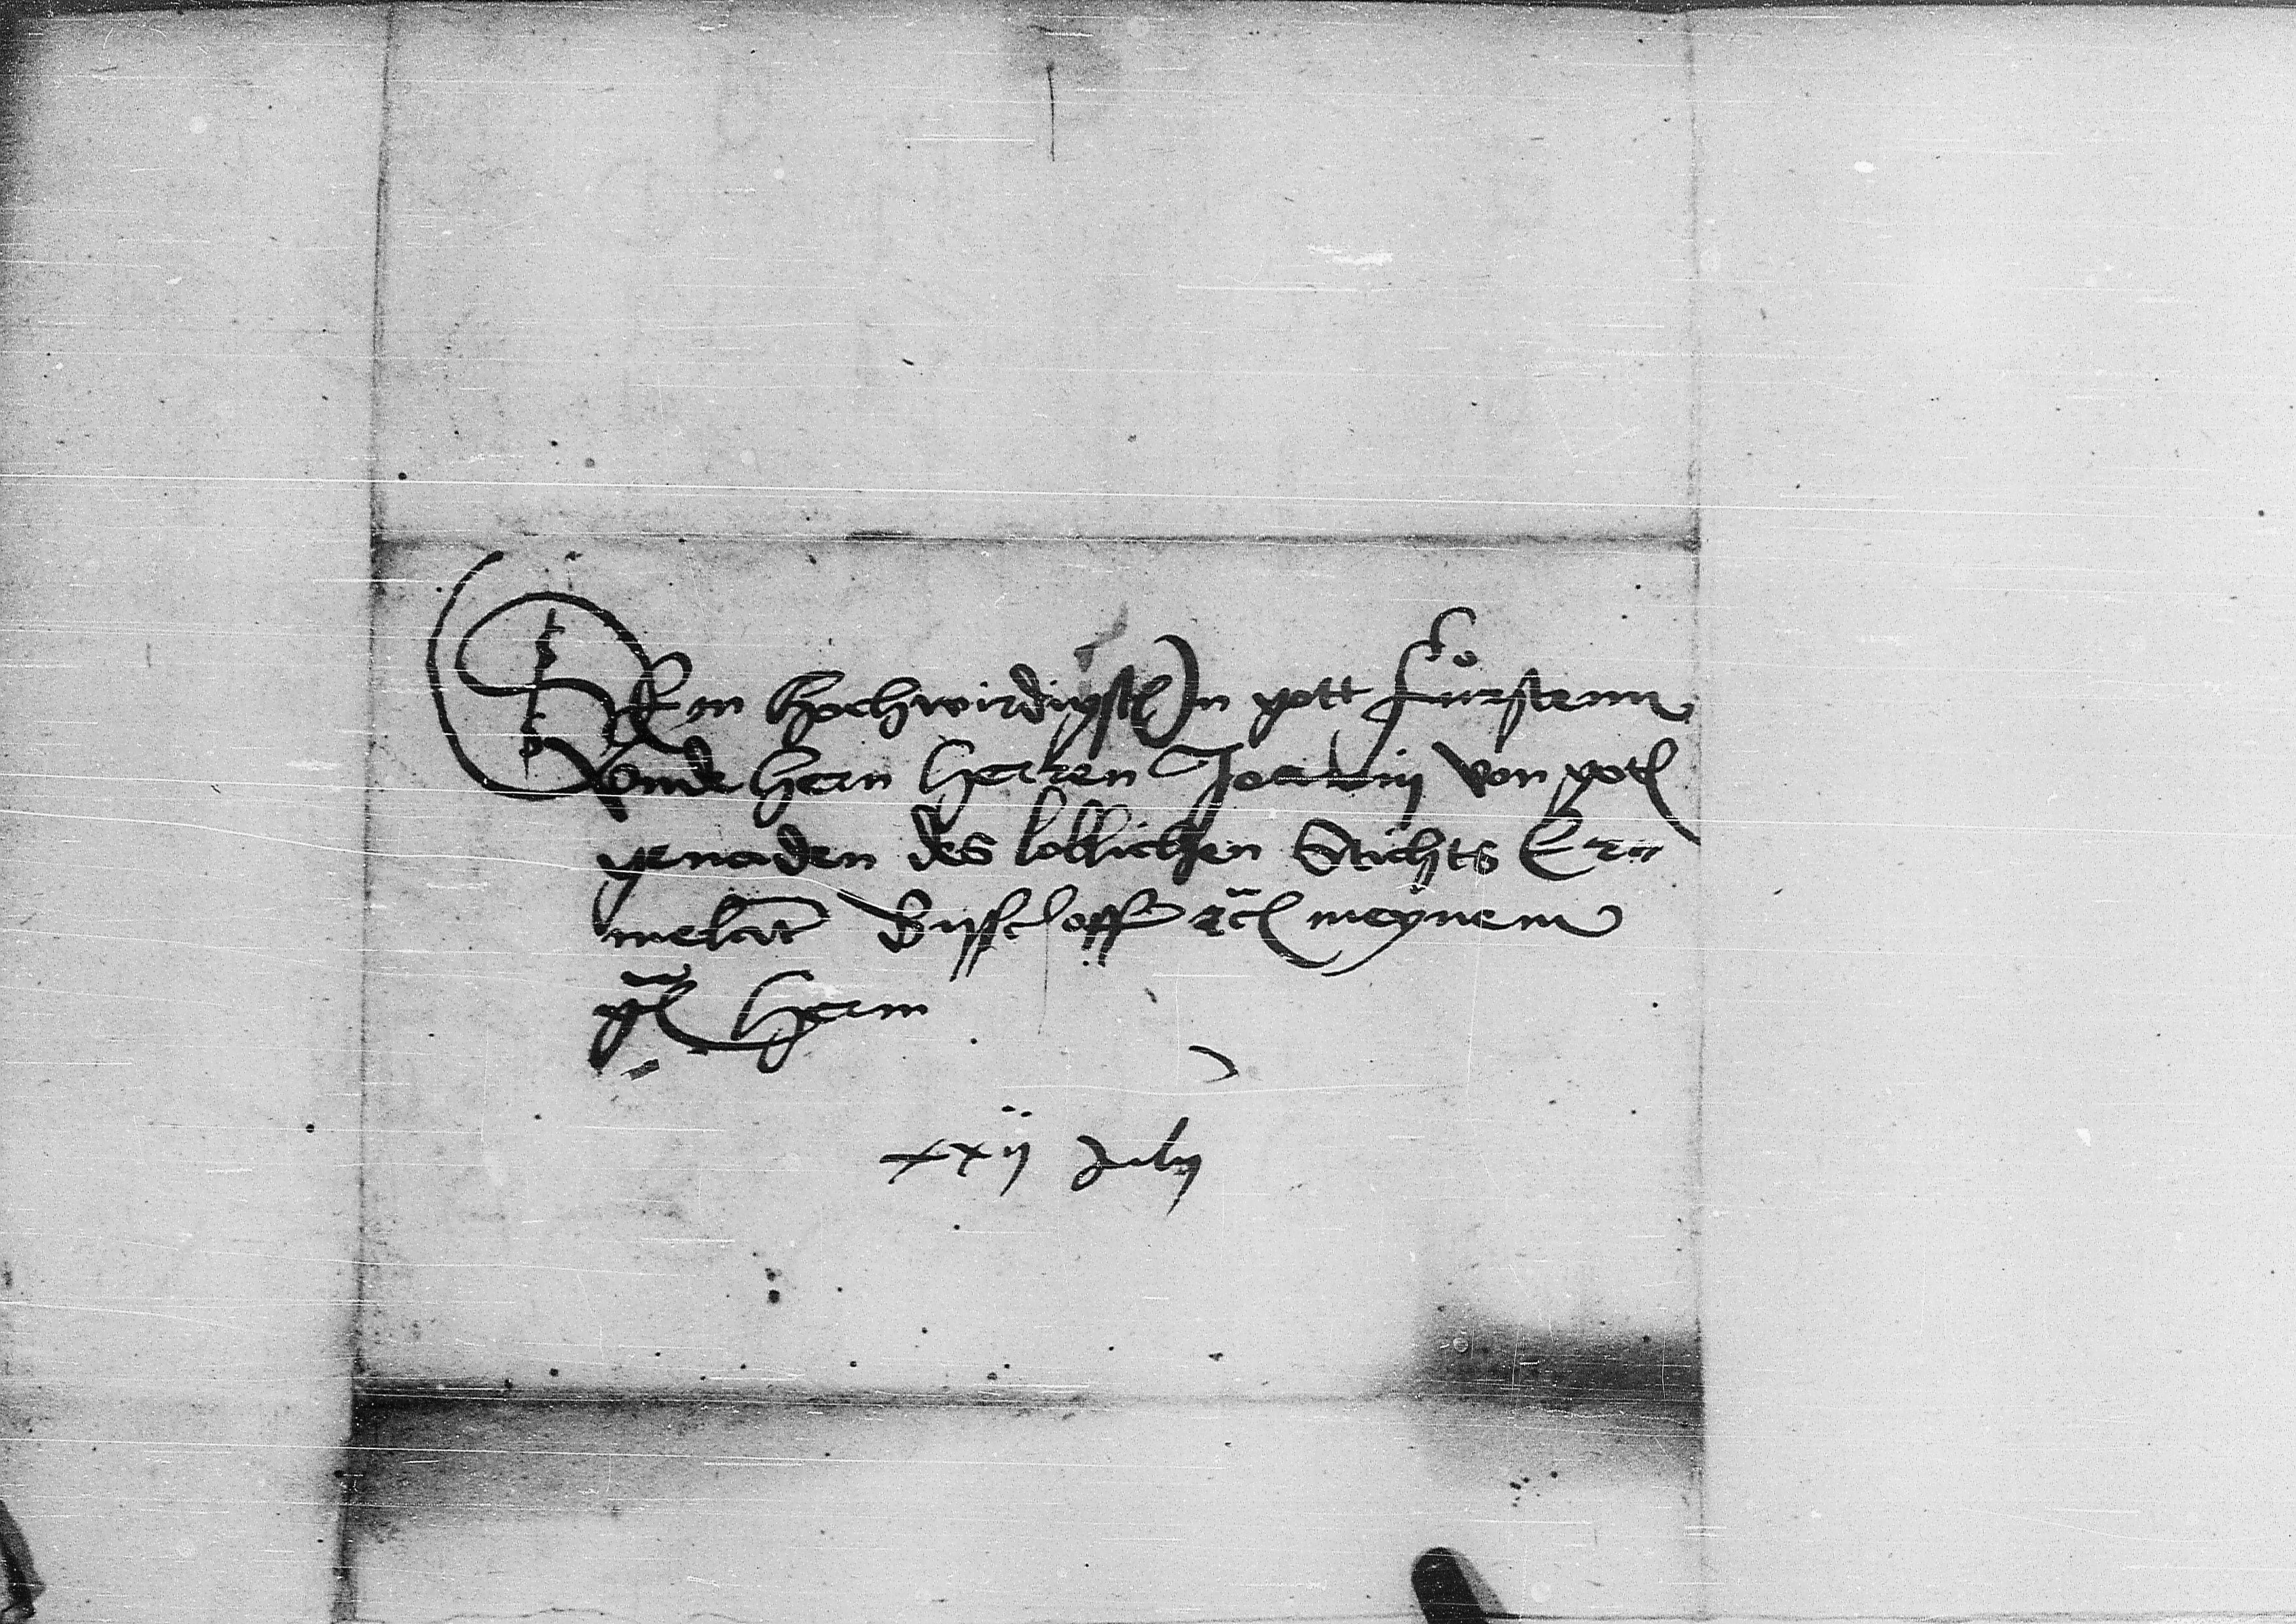 Dem hochwirdigsten In gott furstenn
vnde hern herren Joachim von gots
genaden des loblichen Stichts Er=
melant Bysschoff etc meynem
gn hern
xxij July